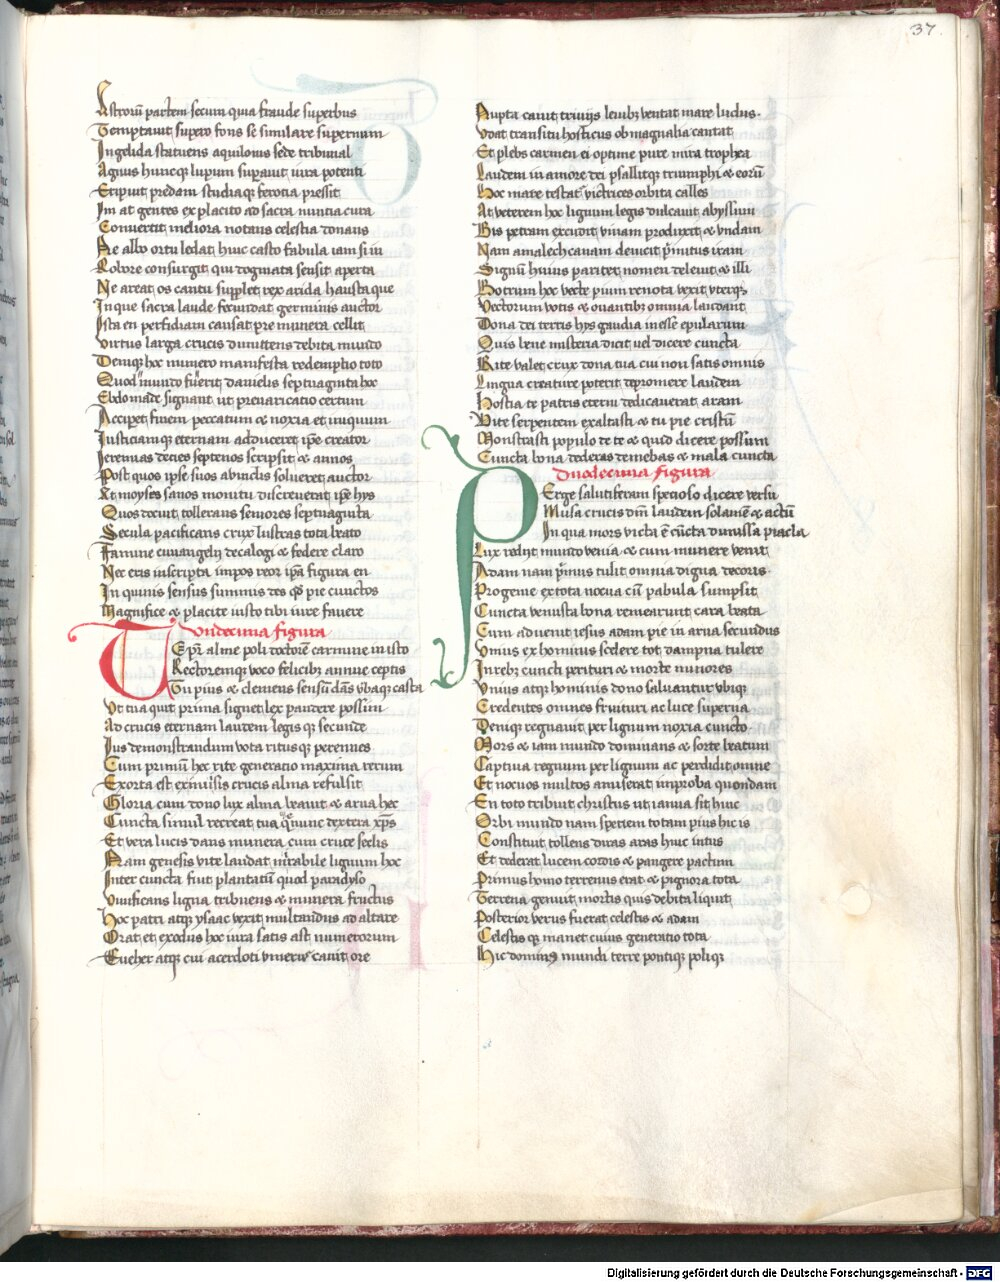 37.
Astrorū partem secum quia fraude superbus
Temptauit supero fons se similare supernum
In gelida statuens aquilonis sede tribunal
Agnus huncq; lupum supauit iura potenti
Eripuit predam studiaq; ferotia pressit
Im at gentes ex placito ad sacra nuntia cura
Conuertit meliora notans celestia donans
Ne albo ortu ledat huic casto fabula iam si iu
Robore consurgit qui dogmata sensit aperta
Ne areat os cantu supplet rex arida hausta que
In que sacra laude fecundat germinis auctor
Ista en perfidiam causat pre munera cellit
Virtus larga crucis dimittens debita mundo
Denique hoc numero manifesta redemptio toto
Quod mundo fuerit danielis septuaginta hoc
Ebdomade signant ut preuaricatio certum
Accipet finem peccatum & noxia et iniquum
Iusticiamq; eternam adduceret ip̄e creator
Jeremias decies septenos scripsit & annos
Post quos ipse suos a vinclis solueret auctor
Et moyses sanos monitu discreuerat ip̄e hys
Quos docuit tollerans seniores septuaginta
Secula pacificans crux lustras tota beato
Famine euuangelij decalogi & federe claro
Nec eris inscripta impos reor ip̄a figura en
In quinis sensus summis tes pie cunctos
Magnifice & placite iusto tibi iure fauere
Vndecima figura
Tepr̄ alme poli doctorē carmine in isto
Rectoremque voco felicib; annue ceptis
Tu pius & clemens sensū dās vbaq; casta
Vt tua quit prima signet lex pandere possim
Ad crucis eternam laudem legis q; secunde
Ius demonstrandum vota ritusq; perennes
Cum primū hec rite generatio maxima rerum
Exorta est eximijs crucis alma refulsit
Gloria cum dono lux alma beauit & arua hec
Cuncta simul recreat tua nunc dextera xp̄s
Et vera lucis dans munera cum cruce seclis
Nam genesis vite laudat mirabile lignum hoc
Inter cuncta fuit plantatū quod paradyso
Viuificans ligna tribuens & munera fructus
Hoc patri atq; ysaac vexit multandus ad altare
Orat et exodus hoc iura satis ast numerorum
Eueher atq; cui acerdoti cauit ore
Nupta cauit triuijs leuib; ventat mare ludus.
Vdat transitu hosticus ob magnalia cantat
Et plebs carmen ei optime pure mira trophea
Laudem in amore dei psallitq; triumphi & eorū
Hoc mare testat victrices orbita calles
At veterem hoc lignum legis dulcauit abyssum
Bis petram excudit vinam produxit & vndam
Nam amalech cauam deuicit p̄mitus iram
Signū huius pariter nomen deleuit & illi
Botrum hoc vecte pium renota vexit vterq;
Vectorum votis & ouantib; omnia laudant
Dona dei terris hys gaudia inesse epularum
Quis bene misteria dicit vel dicere cuncta
Rite valet crux dona tua cui non satis omnis
Lingua creature poterit depromere laudem
Hostia te patris eterni dedicauerat aram
Vite serpentem exaltasti & tu pie cristū
Monstrasti populo de te & quid dicere possum
Cuncta bona dederas demebas & mala cuncta
Duodecima figura
Perge salutiferam specioso dicere versu
Musa crucis dn̄i laudem solamē & actū
In qua mors victa ē cūcta dimissa piacla
Lux redijt mundo venia & cum munere venit
Adam nam p̄mus tulit omnia digna decoris.
Progenie ex tota nocua cū pabula sumpsit
Cuncta venusta bona remearunt cara beata
Cum aduenit iesus adam pie in arua secundus
Vnius ex hominis scelere tot dampna tulere
In reb; cuncti perituri & morte minores
Vnius atq; hominis dono saluantur vbiq;
Credentes omnes fruituri ac luce superna
Deniq; regnauit per lignum noxia cuncto
Mors & iam mundo dominans & sorte beatum
Captiua regnum per lignum ac perdidit omne
Et nocuos multos amiserat improba quondam
En toto tribuit christus ut ianua sit huic
Orbi mundo nam speciem totam pius hic is
Constituit tollens duras aras huic intus
Et dederat lucem cordis & pangere pactum
Primus homo terrenus erat & pignora tota
Terrena genuit mortis quis debita liquit
Posterior verus fuerat celestis & adam
Celestis q; manet cuius generatio tota
Hic dominus mundi terre pontiq; poliq;
Digitalisierung gefördert durch die Deutsche Forschungsgemeinschaft - DFG